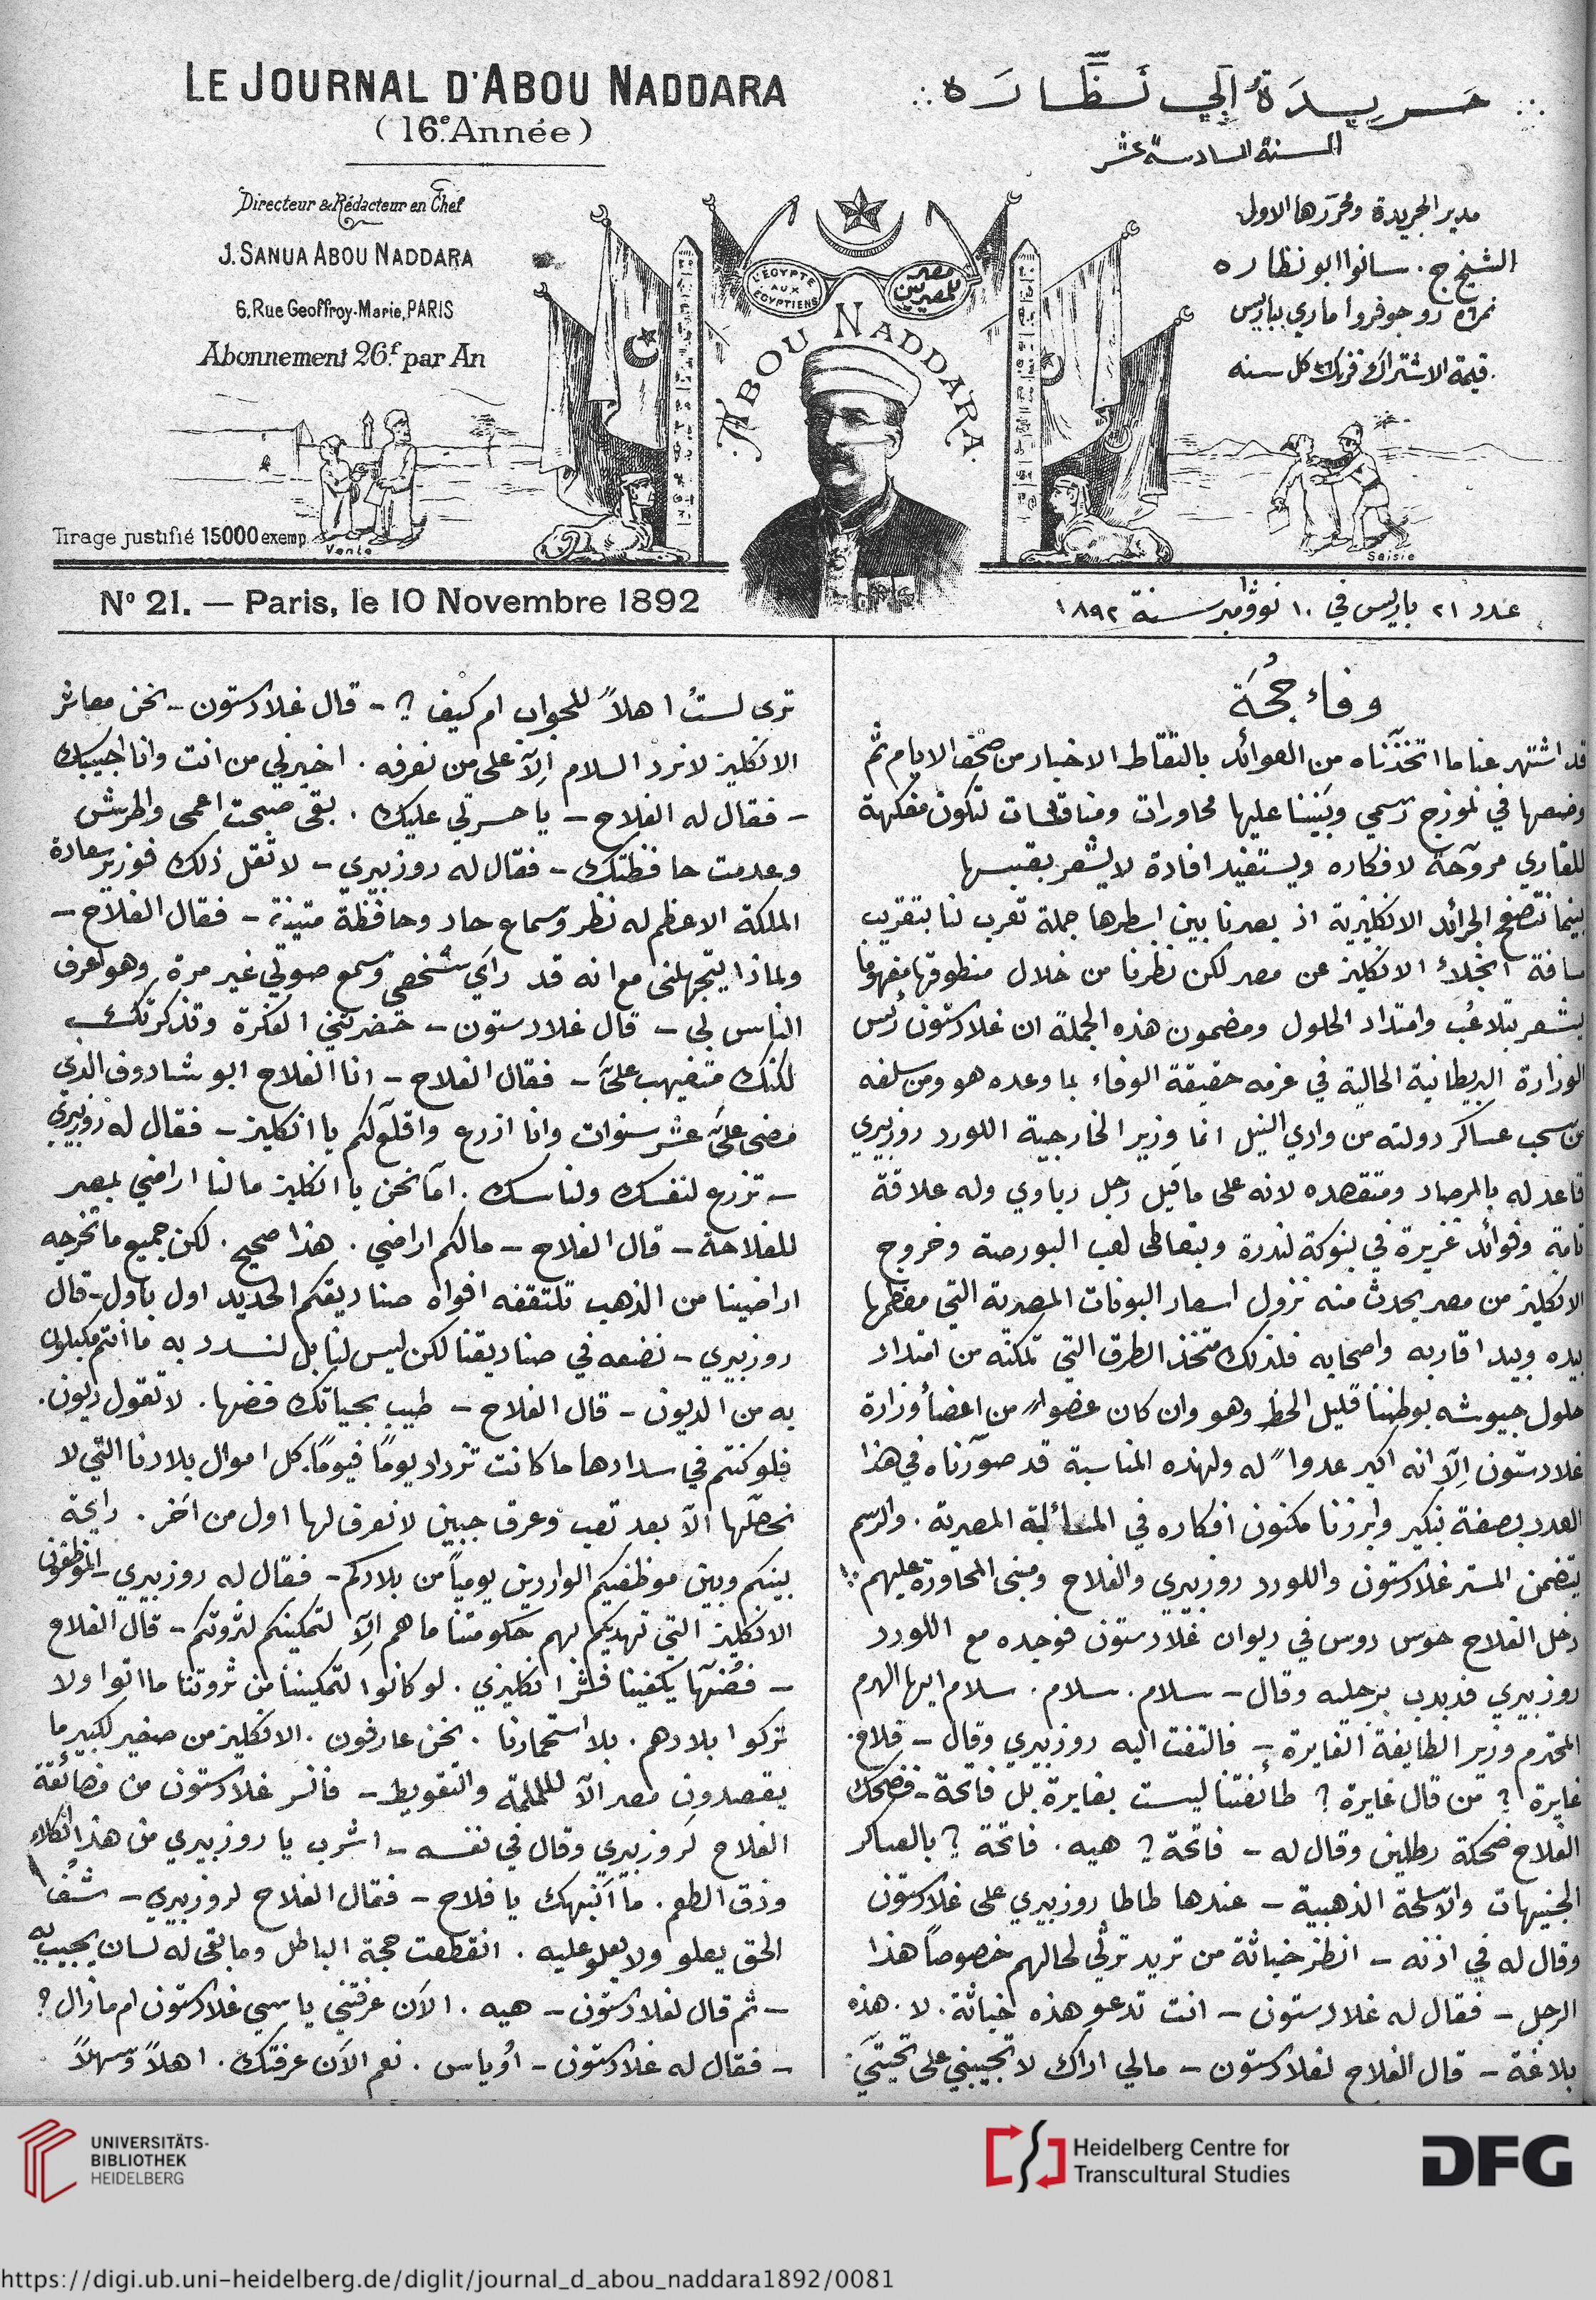 LE JOURNAL D'ABOU NADDARA
(16e. Année)
Directeur & Rédacteur en Chef
J. SANUA ABOU NADDARA
6, Rue Geoffroy-Marie, PARIS
Abonnement 26f. par An
Tirage justifié 15000 exemp.
Vente
جَرِيدَةُ أَبِي نَظَّارَه
السنة السادسة عشر
مدير الجريدة ومحررها الاول
الشيخ ج. سانوا ابو نظاره
نمرة ٦ رو جوفروا ماري بباريس
قيمة الاشتراك ٢٦ فرنك كل سنه
L'EGYPTE AUX EGYPTIENS
مصر للمصريين
ABOU NADDARA
Saisie
No 21. — Paris, le 10 Novembre 1892
عدد ٢١ باريس في ١٠ نوڤمبر سنة ١٨٩٢
وفاء جحَة
قد اشتهر عنا ما اتخذناه من العوائد بالتقاط الاخبار من صحف الايام ثم
وضعها في نموذج رسمي وبنينا عليها محاورات ومناقشات لتكون مفكهة
للقاري مروّحة لافكاره ويستفيد افادة لا يشعر بقبسها
بينما نتصفح الجرائد الانكليزية اذ بصرنا بين اسطرها جملة تعرب لنا بتقريب
مسافة انجلاء الانكليز عن مصر لكن نظرنا من خلال منطوقها مفهوما
يشعر بتلاعب وامتداد الحلول ومضمون هذه الجملة ان غلادستون رئيس
الوزارة البريطانية الحالية في عزمه حقيقة الوفاء بما وعده هو ومن سلفه
من سحب عساكر دولته من وادي النيل انما وزير الخارجية اللورد روزبيري
قاعد له بالمرصاد ومتقصده لانه على ما قيل رجل رباوي وله علاقة
تامة وفوائد غزيرة في بنوكة لندرة وبتعاطى لعب البورصة وخروج
الانكليز من مصر يحدث منه نزول اسعار البونات المصرية التي معظمها
بيده وبيد اقاربه واصحابه فلذلك متخذ الطرق التي تمكنه من امتداد
حلول جيوشه بوطننا قليل الحظ وهو وان كان عضوا من اعضا وزارة
غلادستون إلّا انه اكبر عدوا له ولهذه المناسبة قد صوّرناه في هذا
العدد بصفة بنكير وابرزنا مكنون افكاره في المسائلة المصرية. والرسم
يتضمن المستر غلادستون واللورد روزبيري والفلاح ومبنى المحاورة عليهم
دخل الفلاح حوس دوس في ديوان غلادستون فوجده مع اللورد
روزبيري فدبدب برجليه وقال - سلام. سلام. سلام ايها الهرم
المحترم وزير الطايفة الغايرة - فالتفت اليه روزبيري وقال - فلاح.
غايرة؟ من قال غايرة؟ طائفتنا ليست بغايرة بل فاتحة - فضحك
الفلاح ضحكة رطلين وقال له - فاتحة؟ هيه. فاتحة؟ بالعساكر
الجنيهات والاسلحة الذهبية - عندها طاطا روزبيري على غلادستون
وقال له في اذنه - انظر خباثة من تريد ترثي لحالهم خصوصاً هذا
الرجل - فقال له غلادستون - انت تدعو هذه خباثة. لا. هذه
بلاغة - قال الفلاح لغلادستون - مالي اراك لا تجيبني على تحيتي
ترى لستُ اهلاً للجواب ام كيف؟ - قال غلادستون - نحن معاشر
الانكليز لا نرد السلام إلّا على من نعرفه. اخبرني من انت وانا اجيبك
- فقال له الفلاح - يا حسرتي عليك. بقى صبحت اعمى واطرش
وعدمت حافظتك - فقال له روزبيري - لا تقل ذلك فوزير سعادة
الملكة الاعظم له نظر وسماع حاد وحافظة متينة - فقال الفلاح -
ولماذا يتجهلني مع انه قد رأي شخصي وسمع صوتي غير مرة وهو اعرف
الناس لي - قال غلادستون - حضرتني الفكرة وتذكرتك
لكنك متغيهب عليّ - فقال الفلاح - انا الفلاح ابو شادوف الذي
مضى عليّ عشر سنوات وانا ازرع واقلّع لكم يا انكليز - فقال له روزبيري
- تزرع لنفسك ولناسك. اما نحن يا انكليز ما لنا اراضي بمصر
للفلاحة - قال الفلاح - مالكم اراضي. هذا صحيح. لكن جميع ما تخرجه
اراضينا من الذهب تلتقفه افواه صناديقكم الحديد اول باول - قال
روزبيري - نضعه في صناديقنا لكن ليس لنا بل لنسدد به ما انتم مكبلون
به من الديون - قال الفلاح - طيب بحياتك فضها. لا تقول ديون.
فلو كنتم في سدادها ما كانت تزداد يوماً فيوماً. كل اموال بلادنا التي لا
نحصّلها الّا بعد تعب وعرق جبين لا نعرف لها اول من آخر. رايحة
بينكم وبين موظفيكم الواردين يومياً من بلادكم - فقال له روزبيري - الموظفون
الانكليز التي تهديكم لهم حكومتنا ما هم إلّا لتمكينكم لثروتكم - قال الفلاح
- فضها يكفينا فشر انكليزي. لو كانوا لتمكيننا من ثروتنا ما اتوا ولا
تركوا بلادهم. بلا استحمارنا. نحن عارفون. الانكليز من صغير لكبير ما
يقصدون مصر الّا للململة والتقويط - فانسر غلادستون من
الفلاح لروزبيري وقال في نفسه - اشرب يا روزبيري من هذا الكلاء
وذق الطعم. ما أنبهك يا فلاح - فقال الفلاح لروزبيري - شف
الحق يعلو ولا يعلو عليه. انقطعت حجة الباطل وما بقى له لسان يجيب به
- ثم قال لغلادستون - هيه. الآن عرفتني يا سي غلادستون ام ما زال؟
- فقال له غلادستون - أو ياس. نعم الآن عرفتك. اهلاً وسهلاً
UNIVERSITÄTS-
BIBLIOTHEK
HEIDELBERG
Heidelberg Centre for
Transcultural Studies
DFG
https://digi.ub.uni-heidelberg.de/diglit/journal_d_abou_naddara1892/0081